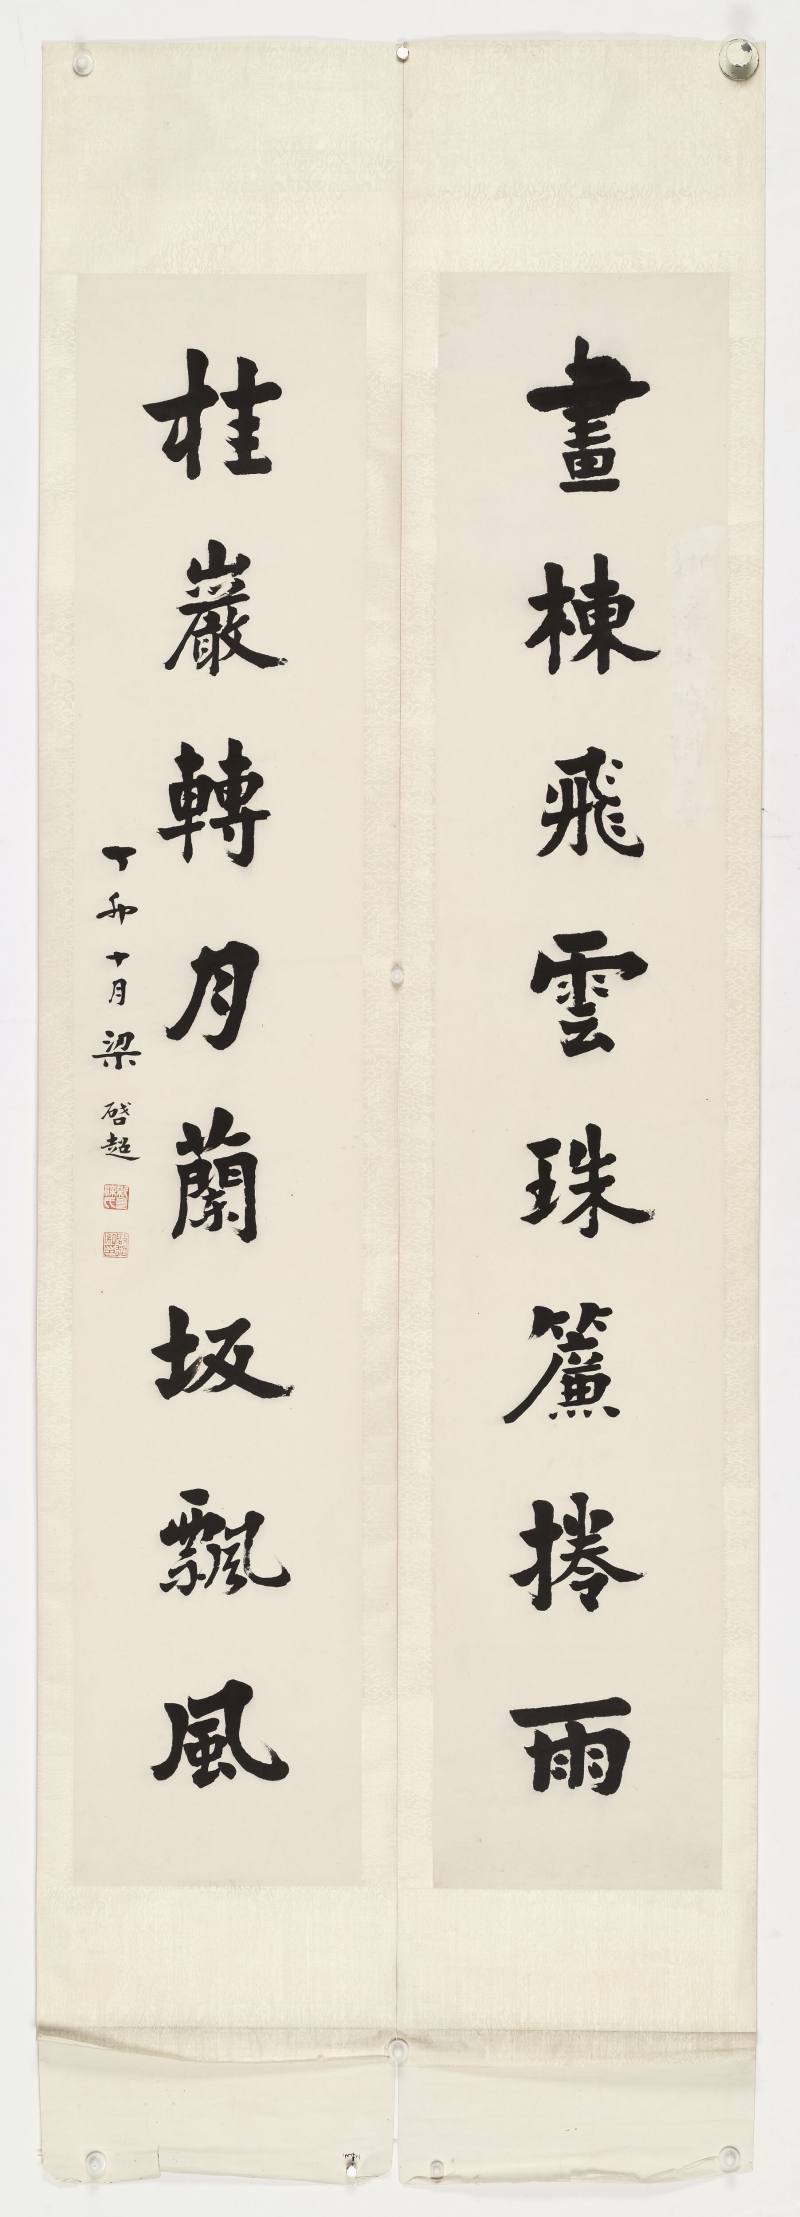 畫棟飛雲珠簾捲雨
桂巖轉月蘭坂飄風
丁卯十月梁啓超